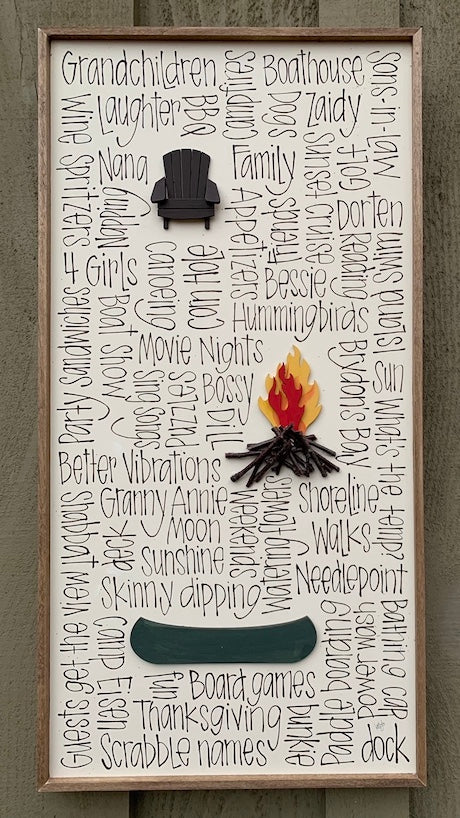 Grandchildren
Boathouse
Sons-in-law
Wine Spritzers
Laughter
BBQ
Campfires
Dogs
Zaidy
Nana
Napping
Family
Sunset cruise
Golf
Appetizers
Friends
Dorten
Reading
4 Girls
canoeing
Corn Hole
Bessie
Island swim
Hummingbirds
Party Sandwiches
Boat show
Movie Nights
Sing Songs
Pizzas
Bossy
Dill
Brydons Bay
Sun
What's the temp
Better Vibrations
Granny Annie
Shoreline
Shabbat
Kek
Moon
Weekends
Watering-flowers
Walks
Sunshine
Needlepoint
Skinny dipping
Guests get the view
Camp Eisen
Paddle boarding
Power wash
Bathing cap
fun
Board games
Thanksgiving
bunkie
Scrabble names
dock